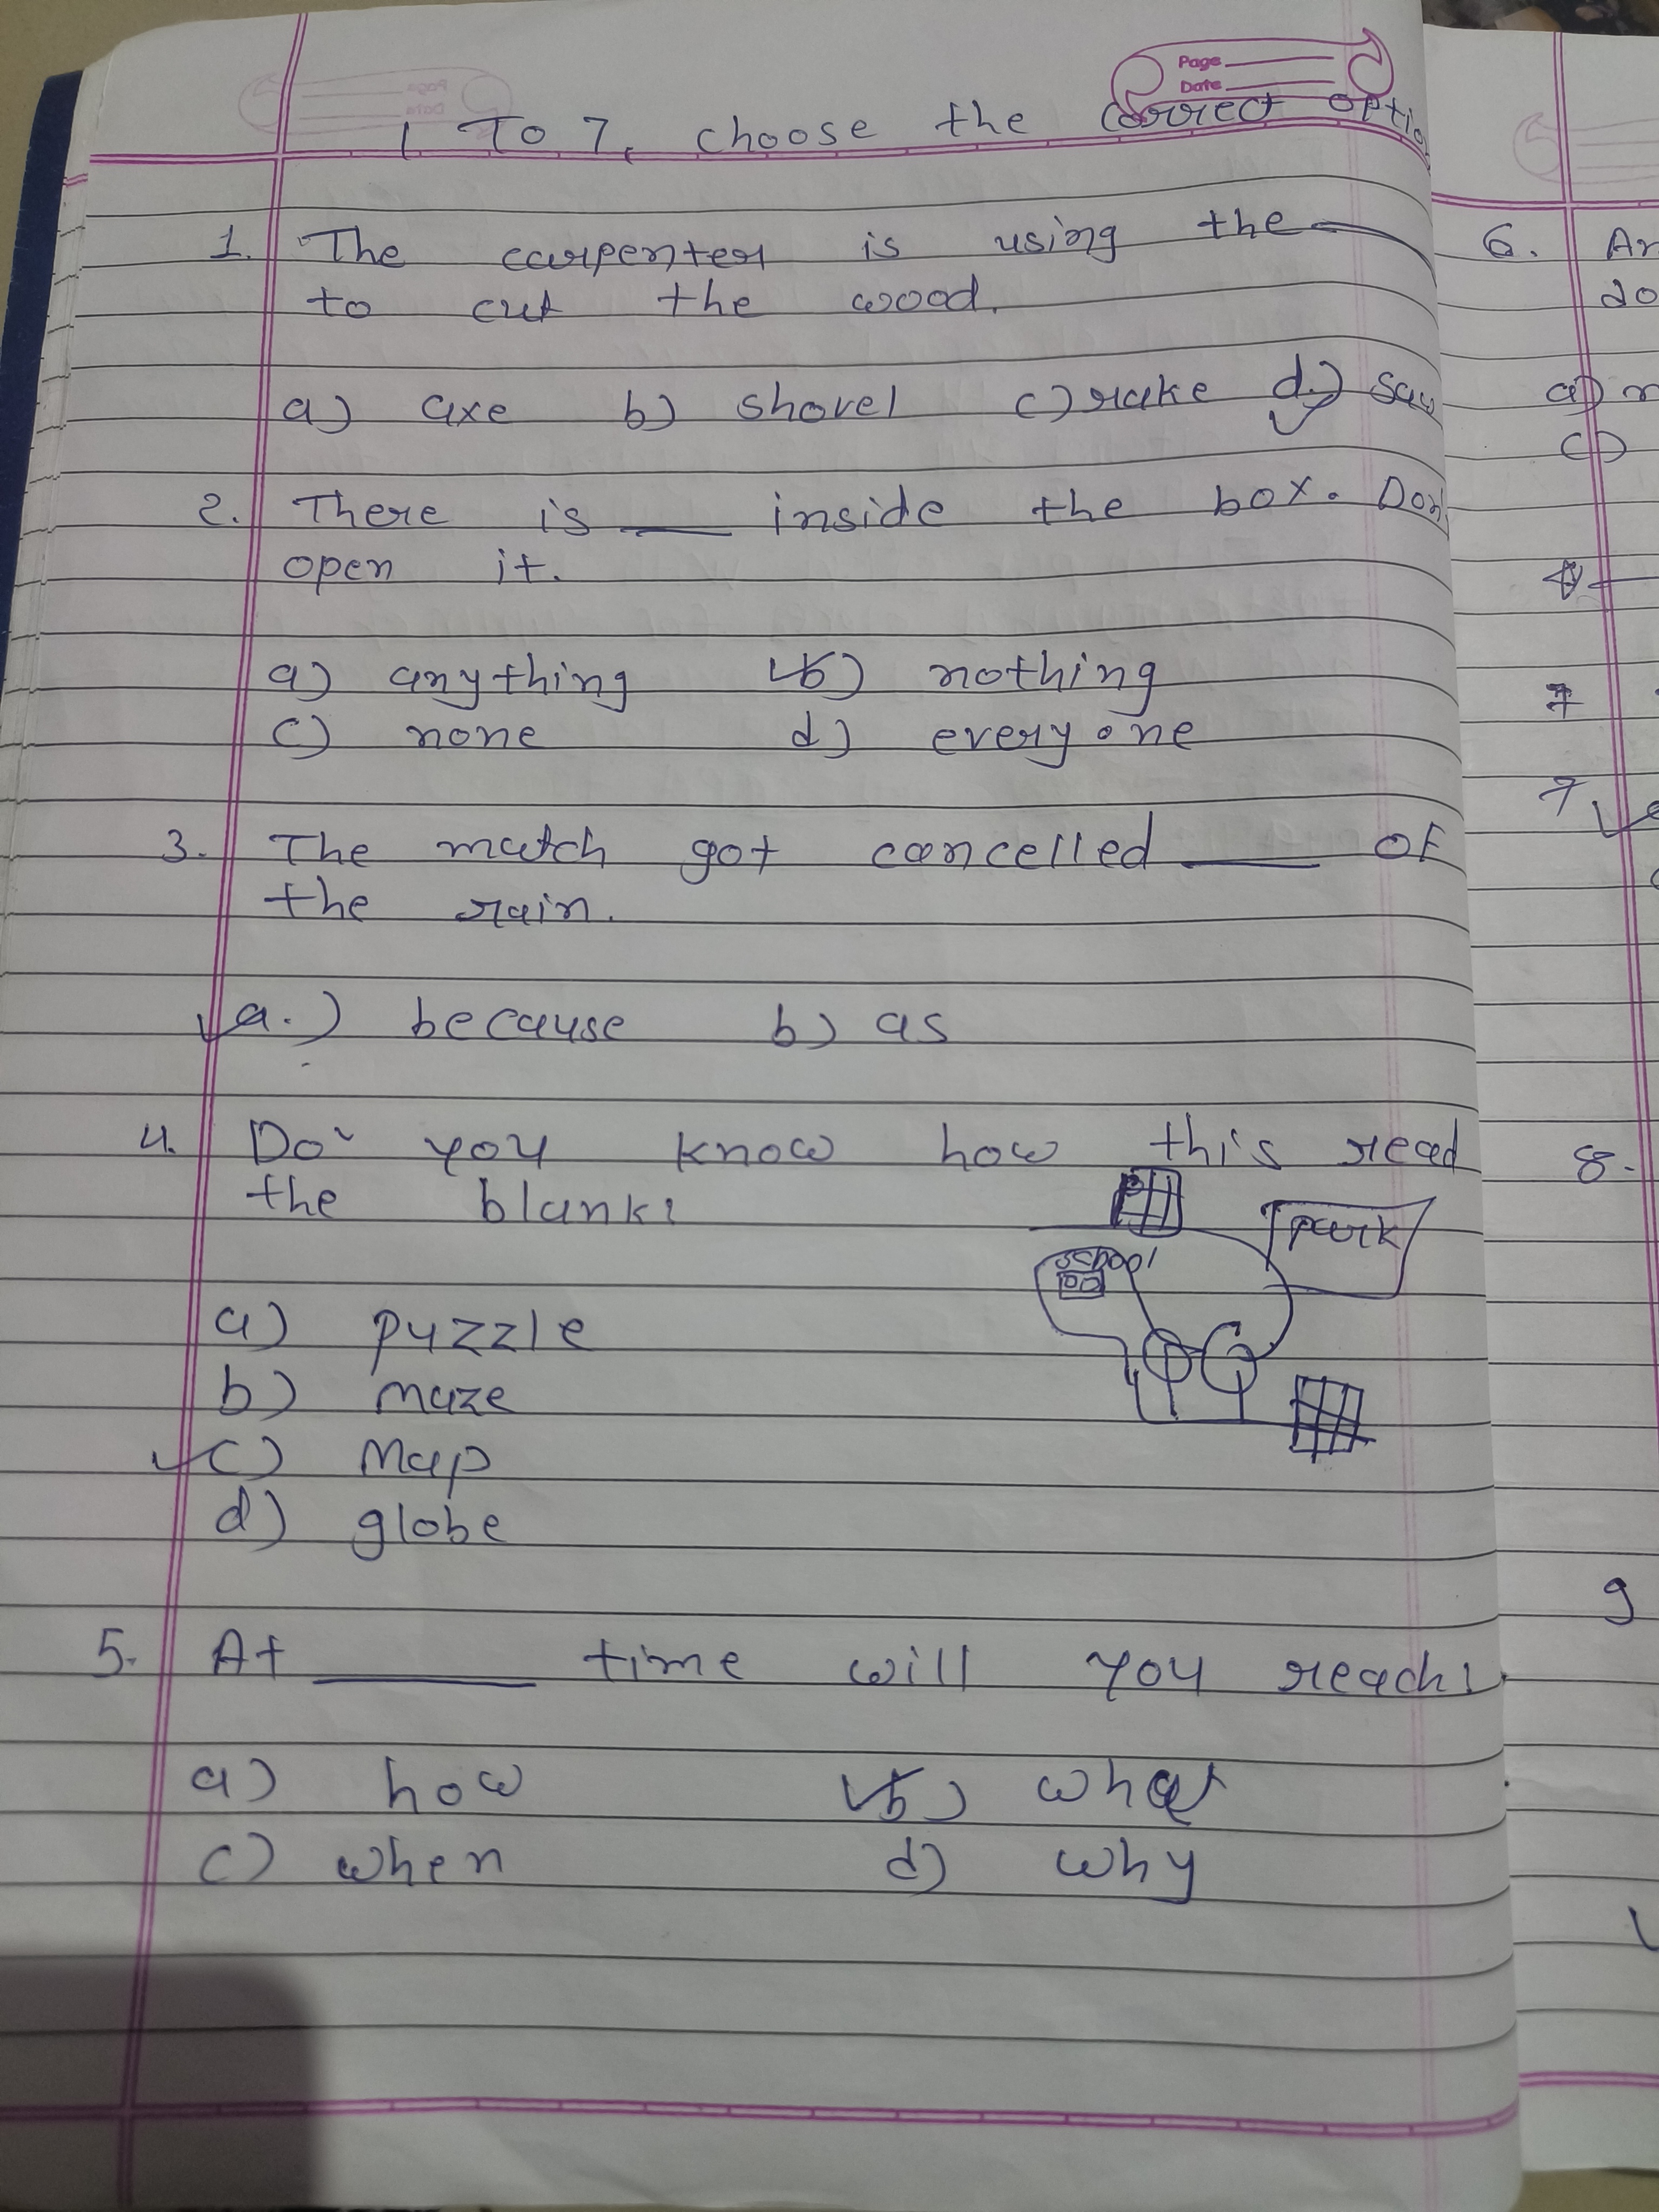 Page
Date
1 To 7, choose the correct optio
1. The carpenter is using the —
to cut the wood.
a) axe b) shovel c) rake d.) saw
2. There is ___ inside the box. Don
open it.
a) anything b) nothing
c) none d) everyone
3. The match got cancelled ___ of
the rain.
a.) because b) as
4. Do you know how this read
the blank?
park
school
a) puzzle
b) maze
c) Map
d) globe
5. At ___ time will you reach?
a) how b) what
c) when d) why
6. An
do
a)
c)
7
7
8.
9